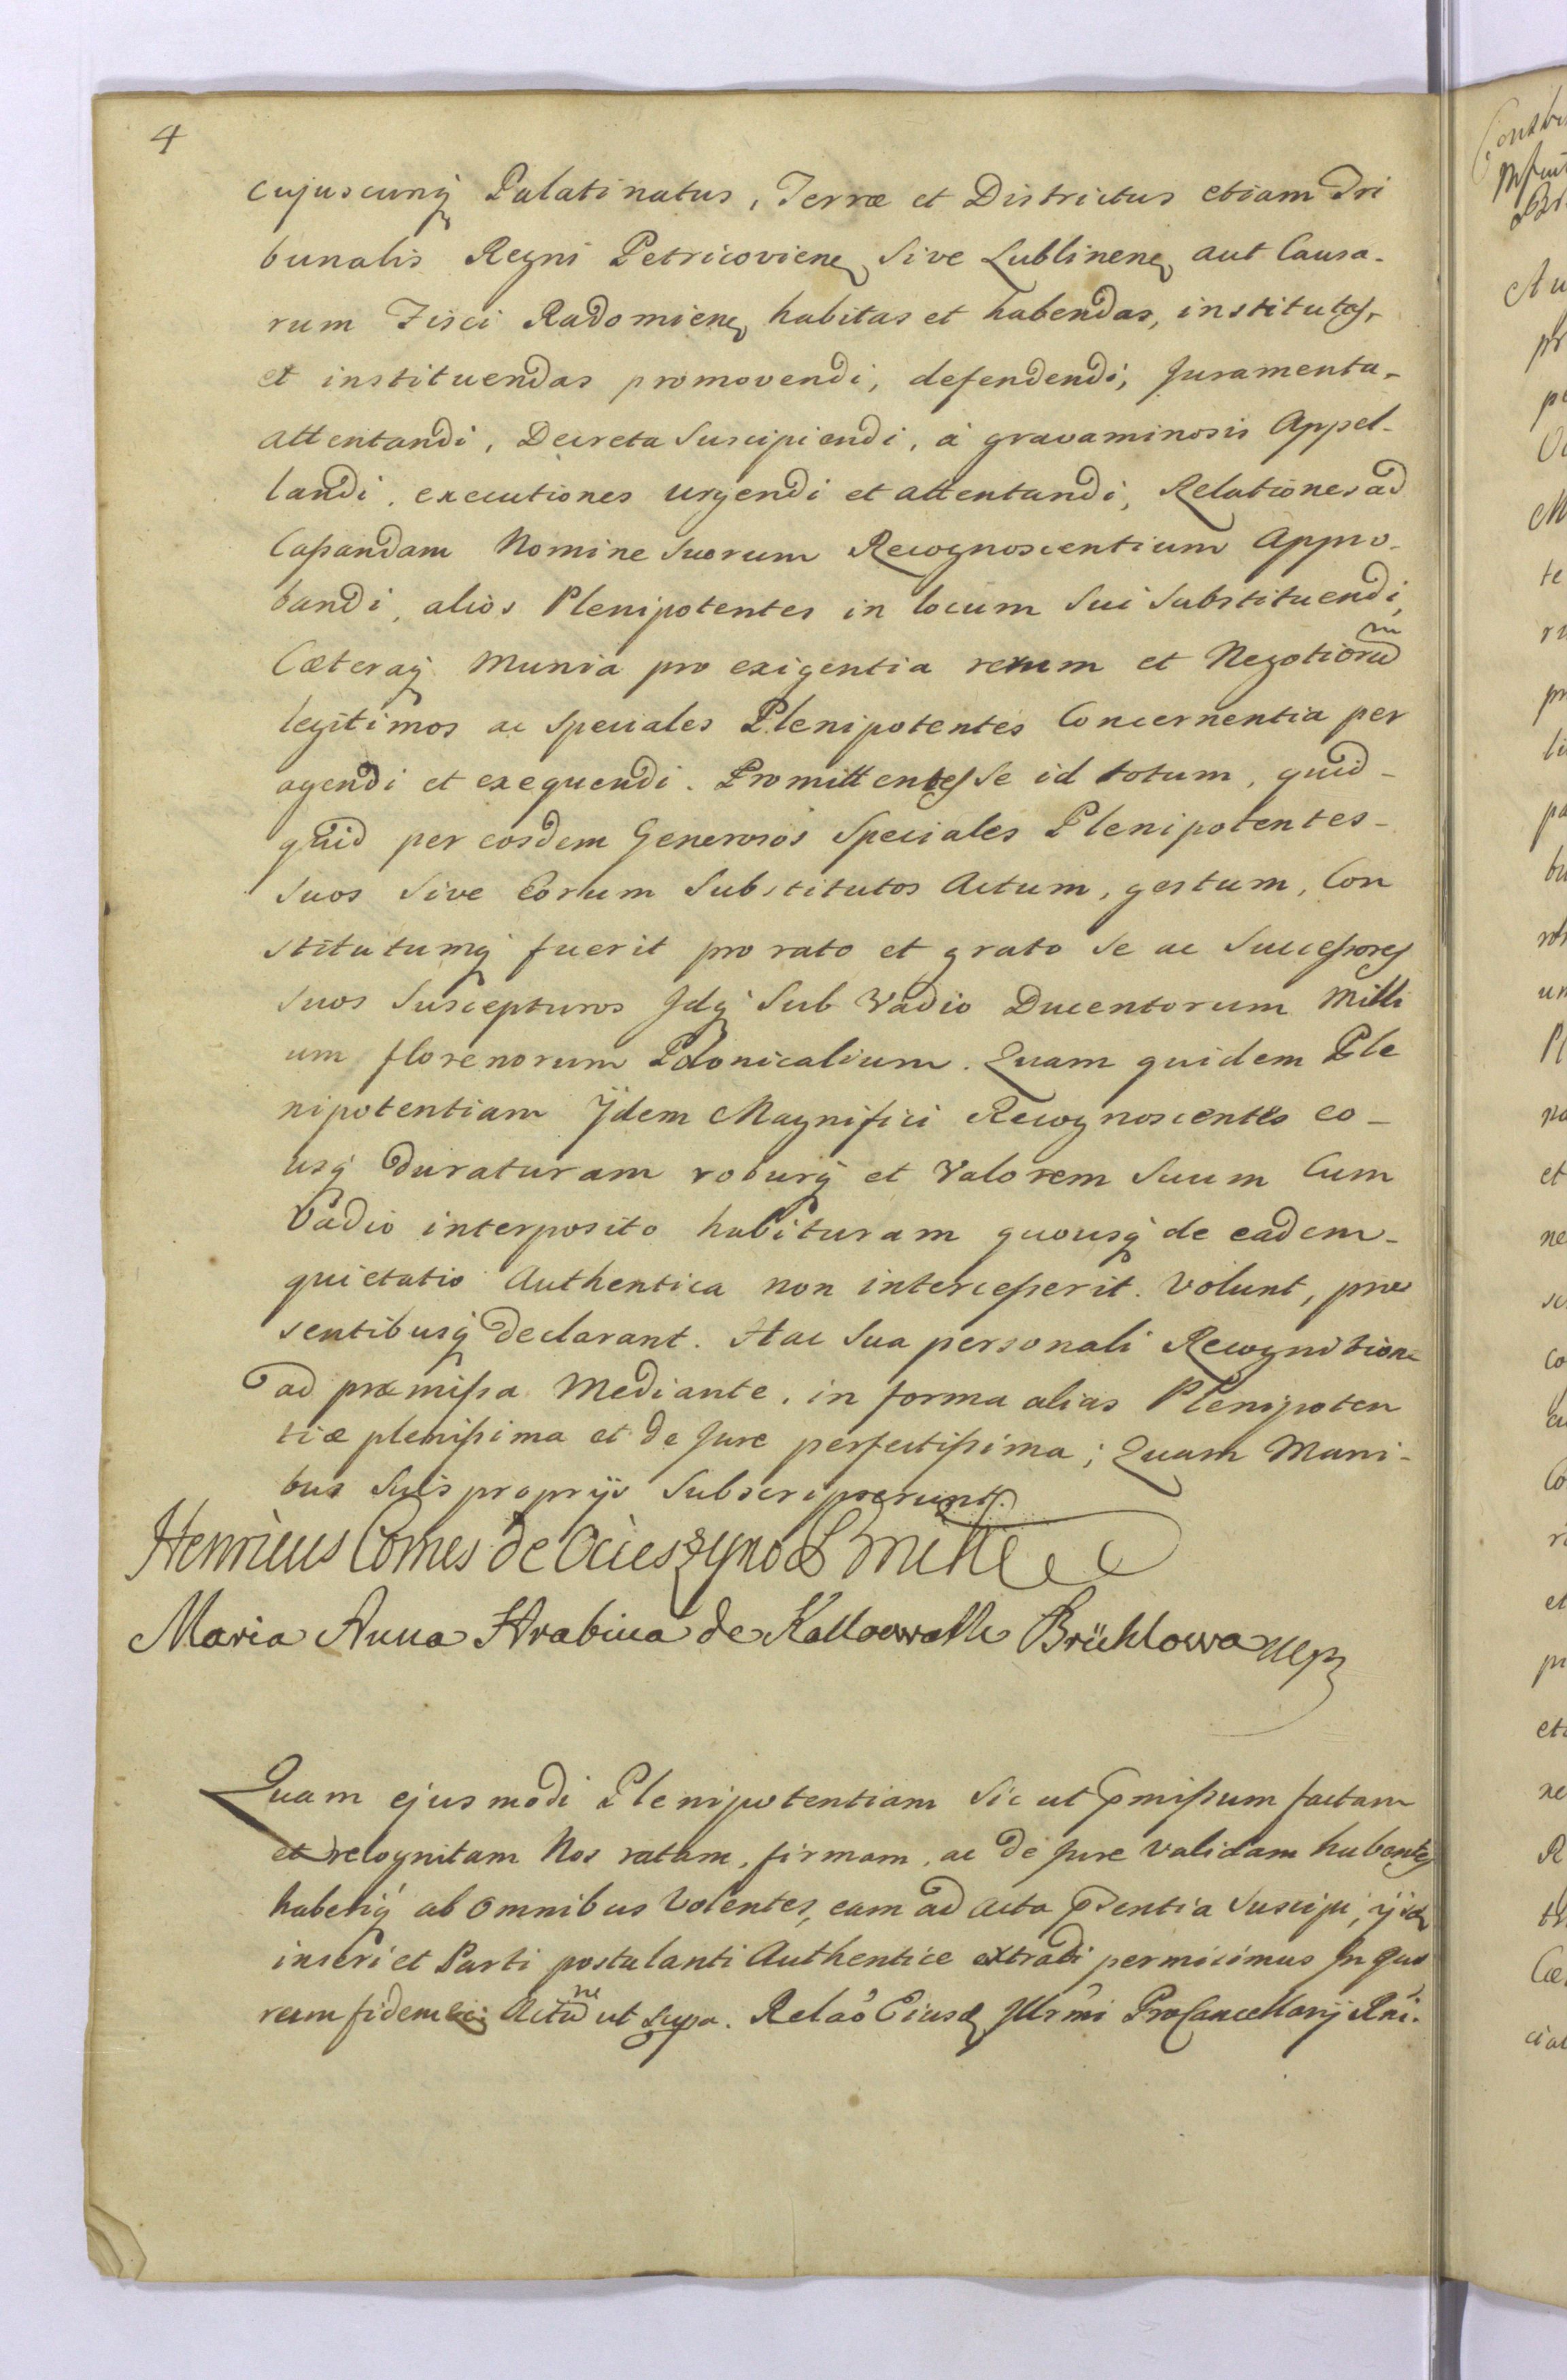 4
cujuscunq Palatinatus, Terræ et Districtus etiam Tri
bunalis Regni Petricoviens sive Lublinens aut Causa-
rum Fisci Radomiens habitas et habendas, institutas,
et instituendas promovendi, defendendi, Juramenta-
attentandi, Decreta Suscipiendi, à gravaminosis Appel-
landi, executiones urgendi et attentandi, Relationes ad
Cassandam Nomine Suorum Recognoscentium Appro-
bandi, alios Plenipotentes in locum Sui Substituendi,
Cæteraq Munia pro exigentia rerum et Negotiorum
legitimos ac Speciales Plenipotentes Concernentia per
agendi et exequendi. Promittentes Se id totum, quid-
quid per eosdem Generosos Speciales Plenipotentes-
Suos Sive Eorum Substitutos Actum, gestum, Con
stitutumq fuerit pro rato et grato Se ac Successores
Suos Suscepturos Jdq Sub Vadio Ducentorum Milli
um florenorum Polonicalium. Quam quidem Ple
nipotentiam Ijdem Magnifici Recognoscentes eo-
usq duraturam roburq et Valorem Suum Cum
Vadio interposito habituram quousq de eadem-
quietatio Authentica non intercesserit. Volunt, præ
sentibusq declarant. Hac Sua personali Recognitione
ad præmissa Mediante, in forma alias Plenipoten
tiæ plenissima et de Jure perfectissima; Quam Mani-
bus Suis proprijs Subscripserunt.
Henricus Comes de Ocieszyno Brühl
Maria Anna Hrabina de Kollowrath Brühlowa mp
Quam ejusmodi Plenipotentiam Sic ut pmissum factam
et recognitam Nos ratam, firmam, ac de Jure validam habentes
haberiq ab omnibus Volentes, eam ad Acta psentia Suscipi, ijsdem
inseri et Parti postulanti Authentice extradi permisimus Jn quo
rum fidem Actum ut Supra. Relao Eiusd Jllrmi ProCancellarij Rni.